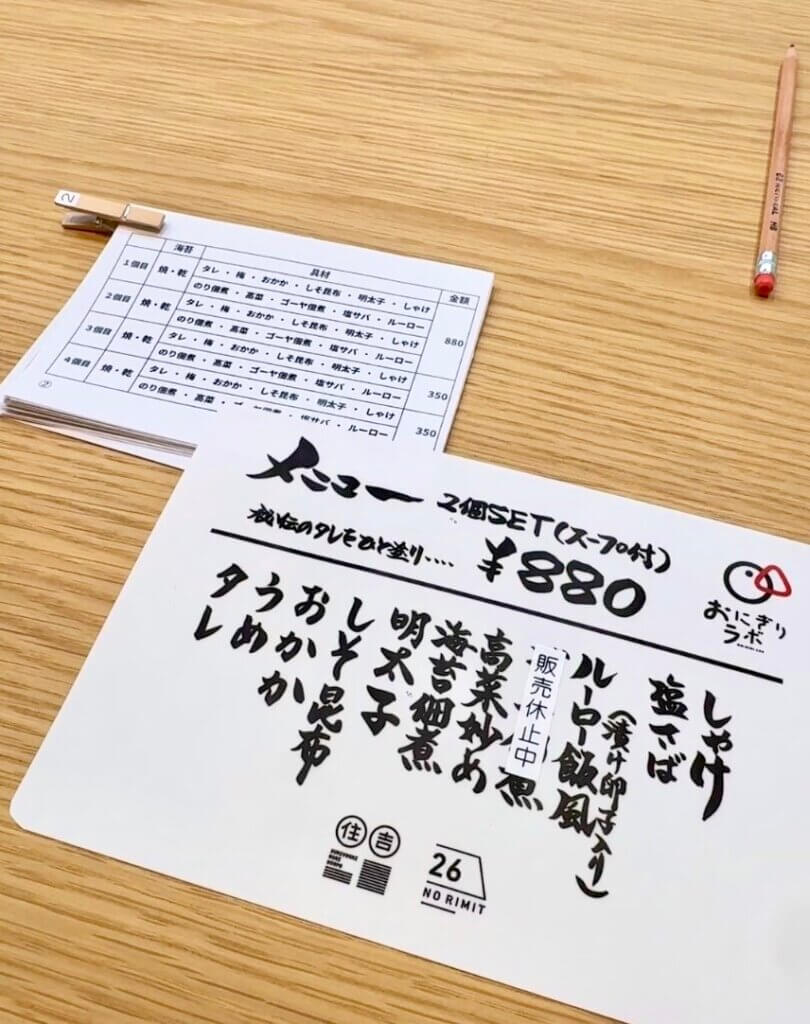 2
海苔 具材 金額
1個目 焼・乾 タレ・梅・おかか・しそ昆布・明太子・しゃけ
のり佃煮・高菜・ゴーヤ佃煮・塩サバ・ルーロー
2個目 焼・乾 タレ・梅・おかか・しそ昆布・明太子・しゃけ
のり佃煮・高菜・ゴーヤ佃煮・塩サバ・ルーロー
880
3個目 焼・乾 タレ・梅・おかか・しそ昆布・明太子・しゃけ
のり佃煮・高菜・ゴーヤ佃煮・塩サバ・ルーロー
350
4個目 焼・乾 タレ・梅・おかか・しそ昆布・明太子・しゃけ
のり佃煮・高菜・ゴーヤ佃煮・塩サバ・ルーロー
350
②
メニュー 2個SET(スープ付)
秘伝のタレをひと塗り‥‥ ¥880
おにぎり
ラボ
しゃけ
塩さば
ルーロー飯風
(漬け卵黄入り)
販売休止中
高菜炒め
海苔佃煮
明太子
しそ昆布
おかか
うめ
タレ
住吉
26
NO RIMIT